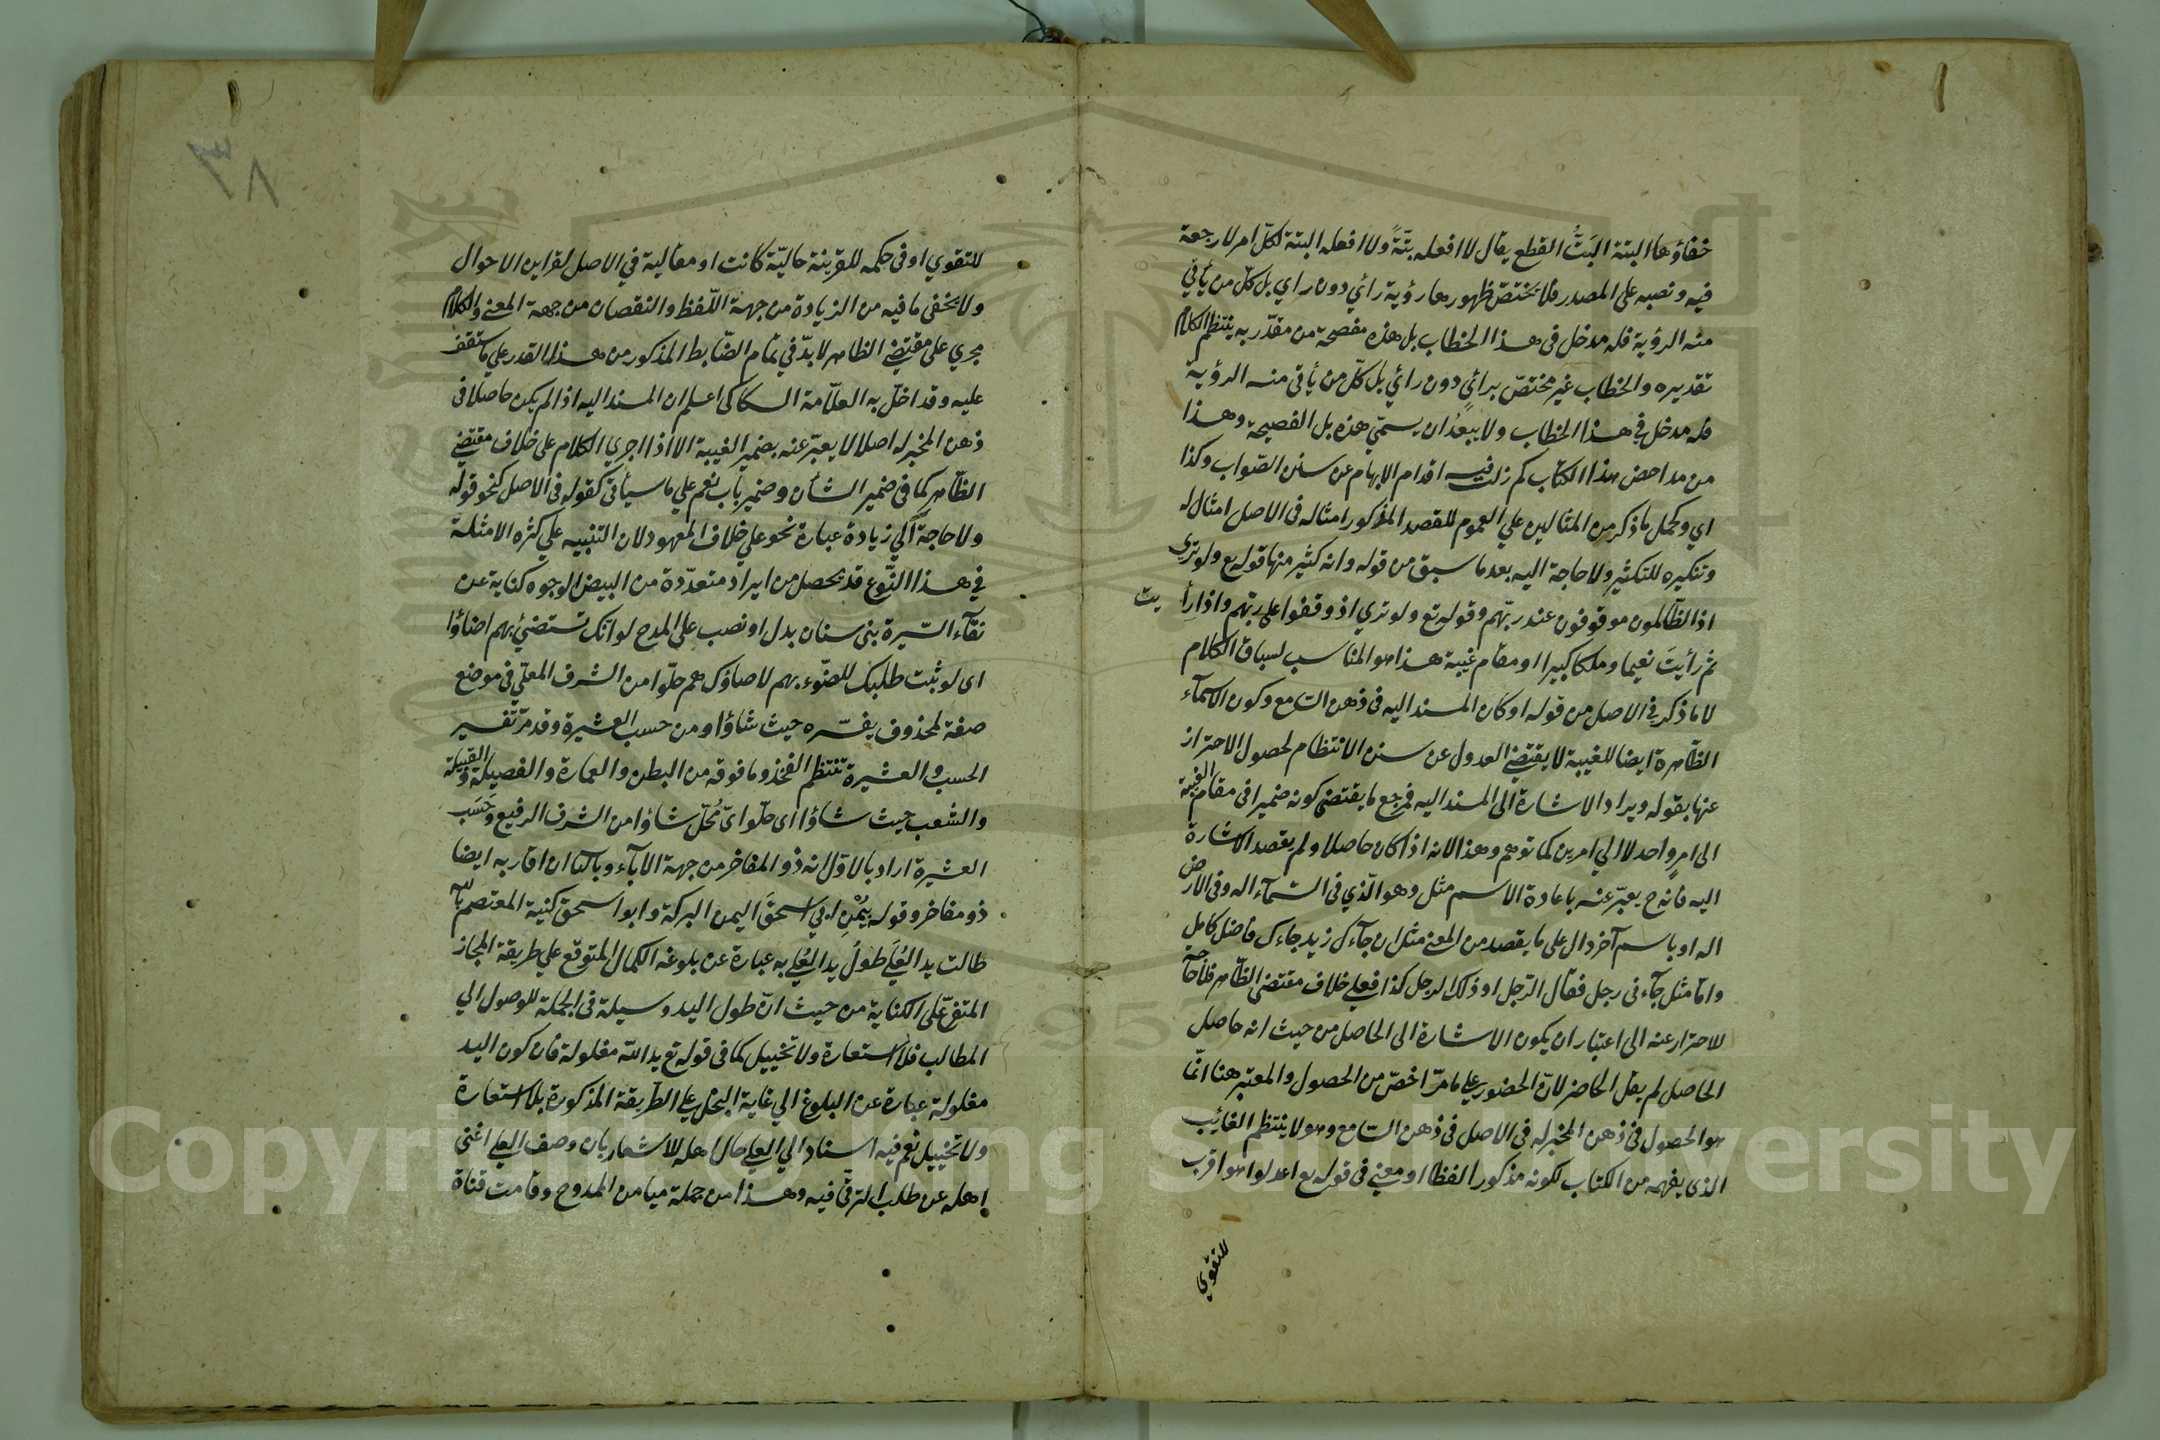 خفاؤها البتة البَتُّ القطع يقال لا افعله بتّةً ولا افعله البتة لكلّ امر لا رجعة
فيه ونصبه على المصدر فلا يختصّ ظهورها رؤية رائي دون راي بل كلّ من يأتي
منه الرؤية فله مدخل فى هذا الخطاب بل هذه مفصحة من مقدّر به ينتظم الكلام
تقديره والخطاب غير مختصّ برائيٍ دون رائي بل كلّ من يأتي منه الرؤية
فله مدخل في هذا الخطاب ولا يبعُد ان يسمّي هذه بل الفصيحة وهذا
من مداحض هذا الكتاب كم زلت فيه اقدام الابهام عن سنن الصّواب وكذا
اي وكحمل ما ذكر من المثالين علي العموم للقصد المذكور امثاله فى الاصل امثال له
وتنكيره للتكثير ولا حاجة اليه بعد ما سبق من قوله وانه كثير منها قوله تع ولو ترى
اذ الظّالمون موقوفون عند ربّهم وقوله تع ولو تري اذ وقفوا على ربّهم واذا رأيت
ثمّ رأيتَ نعيما وملكا كبيرا او مقام غيبة هذا هو المناسب لسباق الكلام
لا ما ذكر في الاصل من قوله او كان المسند اليه فى ذهن السّامع وكون الاسمآء
الظّاهرة ايضا للغيبة لا يقتضي العدول عن سنن الانتظام لحصول الاحتراز
عنها بقوله ويراد الاشارة الى المسند اليه فمرجع ما يقتضى كونه ضميرا فى مقام الغيبة
الى امرٍ واحد لا الي امرين كما توهم وهذا لانه اذا كان حاصلا ولم يقصد الاشارة
اليه فانه ح يعبّر عنه باعادة الاسم مثل وهو الّذي فى السّمآء اله وفى الارض
اله او باسم آخر دال على ما يقصد من المعنى مثل ان جآءك زيد جاءك فاضل كامل
وامّا مثل جآءنى رجل فقال الرّجل او ذلك الرجل كذا فعلي خلاف مقتضى الظّاهر فلا حاجة
للاحتراز عنه الى اعتبار ان يكون الاشارة الى الحاصل من حيث انه حاصل
الحاصل لم يقل الحاضر لانّ الحضور علي ما مرّ اخصّ من الحصول والمعتبر هنا انّما
هو الحصول فى ذهن المخبر له فى الاصل فى ذهن السّامع وهو لا ينتظم الغايب
الذى يفهمه من الكتاب لكونه مذكورا لفظا او معني فى قوله تع اعدلوا هو اقرب
للتقوي
٣٨
للتقوي او فى حكمه للقرينة حاليّة كانت او مقالية في الاصل لقراين الاحوال
ولا يخفى ما فيه من الزيادة من جهة اللّفظ والنقصان من جهة المعنى والكلام
مجري على مقتضي الظاهر لا بدّ في تمام الضّابط المذكور من هذا القدر علي ما ستقف
عليه وقد اخلّ به العلّامة السكاكى اعلم ان المسند اليه اذا لم يكن حاصلا فى
ذهن المخبر له اصلا لا يعبّر عنه بضمير الغيبة الا اذا اجري الكلام على خلاف مقتضي
الظّاهر كما فى ضمير الشأن وضمير باب نعم علي ما سيأتى كقوله فى الاصل كنحو قوله
ولا حاجة الي زيادة عبارة نحو علي خلاف المعهود لان التنبيه علي كثره الامثلة
في هذا النّوع قد يحصل من ايراد متعدّدة من البيض الوجوه كناية عن
نقآء السّيرة بنى سنان بدل او نصب على المدح لو انّك تستضيُ بهم اضاؤا
اى لو ثبت طلبك للضّوء بهم لاضاؤك هم حلّوا من الشرف المعلّي فى موضع
صفة لمحذوف يفسّره حيث شاؤا ومن حسب العشيرة وقد مرّ تفسير
الحسب والعشيرة تنتظم الفخذ وما فوقه من البطن والعمارة والفصيلة والقبيلة
والشعب حيث شاؤا اى حلّوا اىّ مُحلّ شاؤا من الشرف الرفيع وحَسَب
العشيرة اراد بالاوّل انه ذو المفاخر من جهة الاباء وبالثا ان اقاربه ايضا
ذو مفاخر وقوله بيُمْنِ ابي اسحقَ اليمن البركة وابو اسحق كنية المعتصم بآلله
طالت يد العُلَي طولُ يد العُلي به عبارة عن بلوغه الكمال المتوقّع علي طريقة المجاز
المتفرّع على الكناية من حيث انّ طول اليد وسيلة فى الجملة للوصول الي
المطالب فلا استعارة ولا تخييل كما فى قوله تع يد الله مغلولة فان كون اليد
مغلولة عبارة عن البلوغ الي غاية البخل علي الطّريقة المذكورة بلا استعارة
ولا تخييل نعم فيه اسناد الي العلي حال اهله للاشعار بان وصف العلي اغنى
اهله عن طلب الترقّي فيه وهذا من جملة ميامن الممدوح وقامت قناة